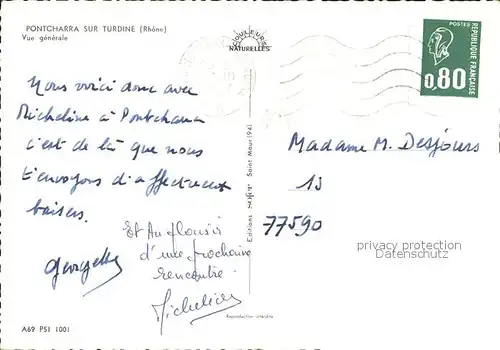 PONTCHARRA SUR TURDINE (Rhône)
Vue générale
COULEURS
NATURELLES
POSTES
RÉPUBLIQUE FRANÇAISE
0,80
Nous voici donc avec
Micheline à Pontcharra
c'est de là que nous
t'envoyons d'affectueux
baisers.
Georgette
Et Au plaisir
d'une prochaine
rencontre.
Micheline
Madame M. Desjours
13
77590
privacy protection
DatenSchutz
Editions
Saint Maur (94)
Reproduction interdite
A69 PSI 1001